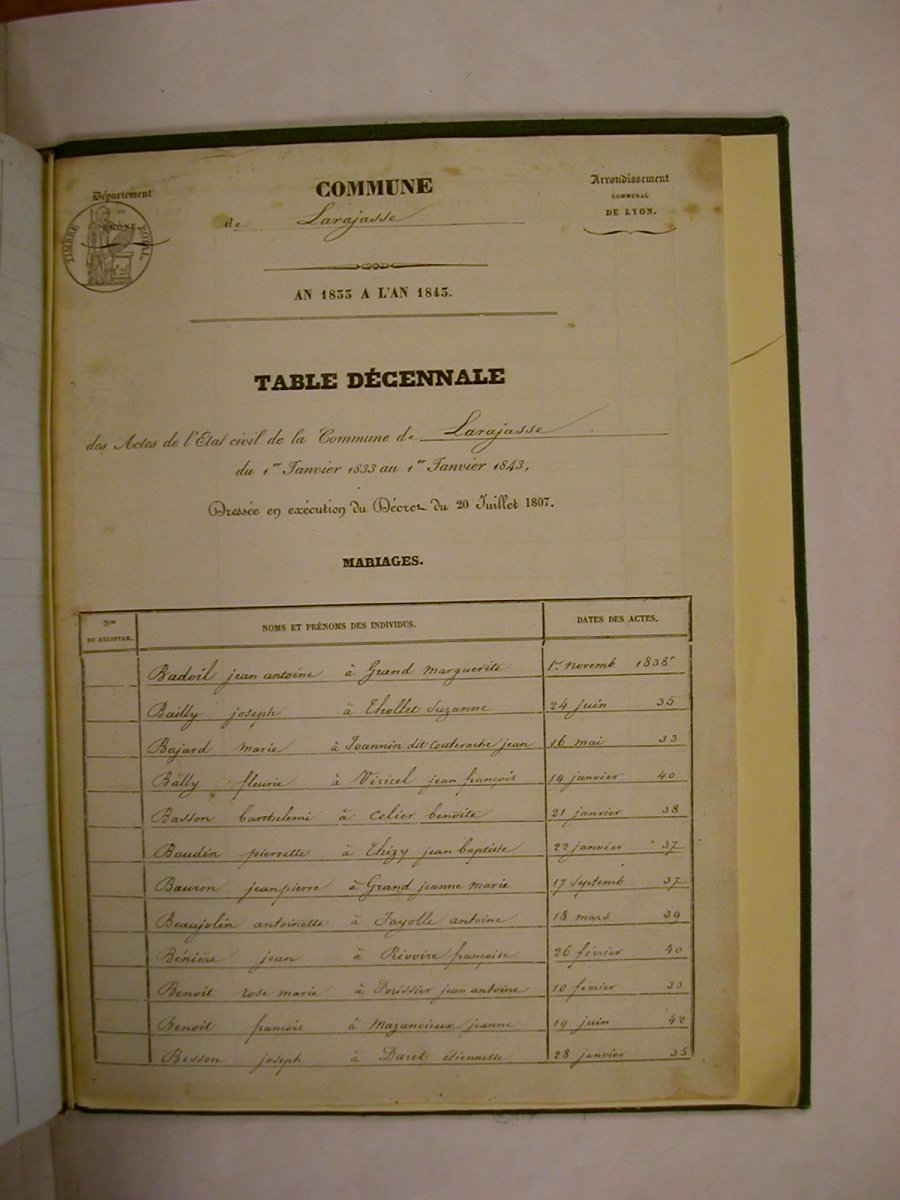 Département
DE
RHONE.
TIMBRE ROYAL
COMMUNE
de Larajasse
Arrondissement
COMMUNAL
DE LYON.
AN 1833 A L'AN 1843.
TABLE DÉCENNALE
des Actes de l'Etat civil de la Commune de Larajasse
du 1er Janvier 1833 au 1er Janvier 1843,
Dressée en exécution du Décret du 20 Juillet 1807.
MARIAGES.
Nos DU REGISTRE. NOMS ET PRÉNOMS DES INDIVIDUS. DATES DES ACTES.
Badoil jean antoine à Grand marguerite 1er novemb 1838
Bailly joseph à Thollet Suzanne 24 juin 35
Bajard marie à Joannin dit couterache jean 16 mai 33
Bally fleurie à Viricel jean françois 14 janvier 40
Basson barthelemi à celier benoite 21 janvier 38
Baudin pierrette à Thizy jean baptiste 22 janvier 37
Bauron jean pierre à Grand jeanne marie 17 septemb 37
Beaujolin antoinette à Fayolle antoine 18 mars 39
Bénière jean à Rivoire françoise 26 février 40
Benoit rose marie à jean antoine 10 fevrier 33
Benoit françois à Mazancieux jeanne 19 juin 42
Besson joseph à Daret étiennette 28 janvier 35